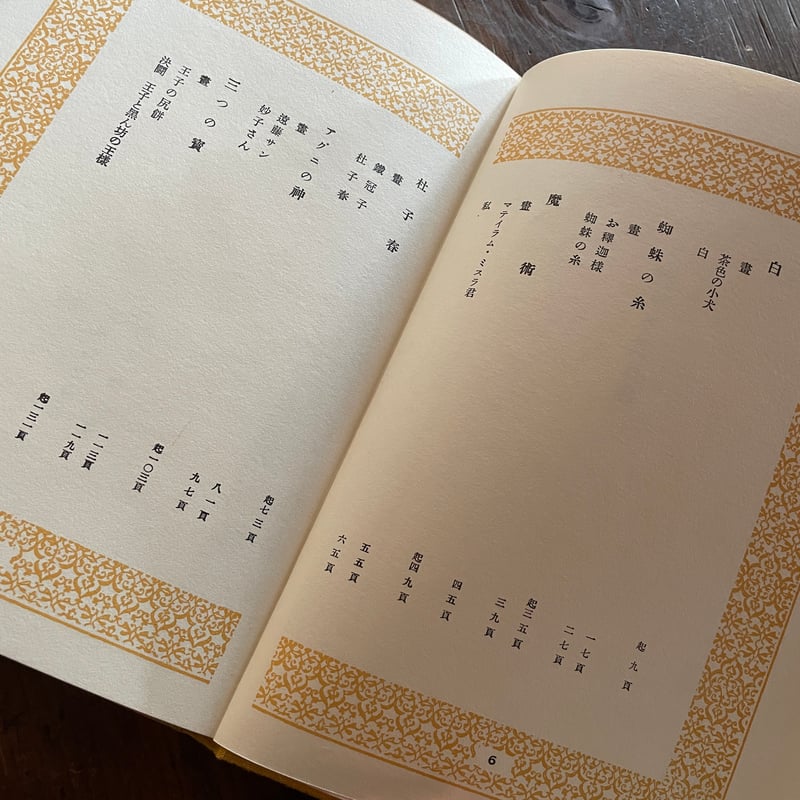 白 起九頁
畫
茶色の小犬 一七頁
白 二七頁
蜘蛛の糸 起三五頁
畫
お釋迦様 三九頁
蜘蛛の糸 四五頁
魔術 起四九頁
畫
マテイラム・ミスラ君 五五頁
私 六五頁
6
杜子春 起七三頁
畫
鐵冠子 八一頁
杜子春 九七頁
アグニの神 起一〇三頁
畫
遠藤サン 一一三頁
妙子さん 一一九頁
三つの寶 起一三一頁
畫
王子の尻餅
決鬪 王子と黒ん坊の王樣